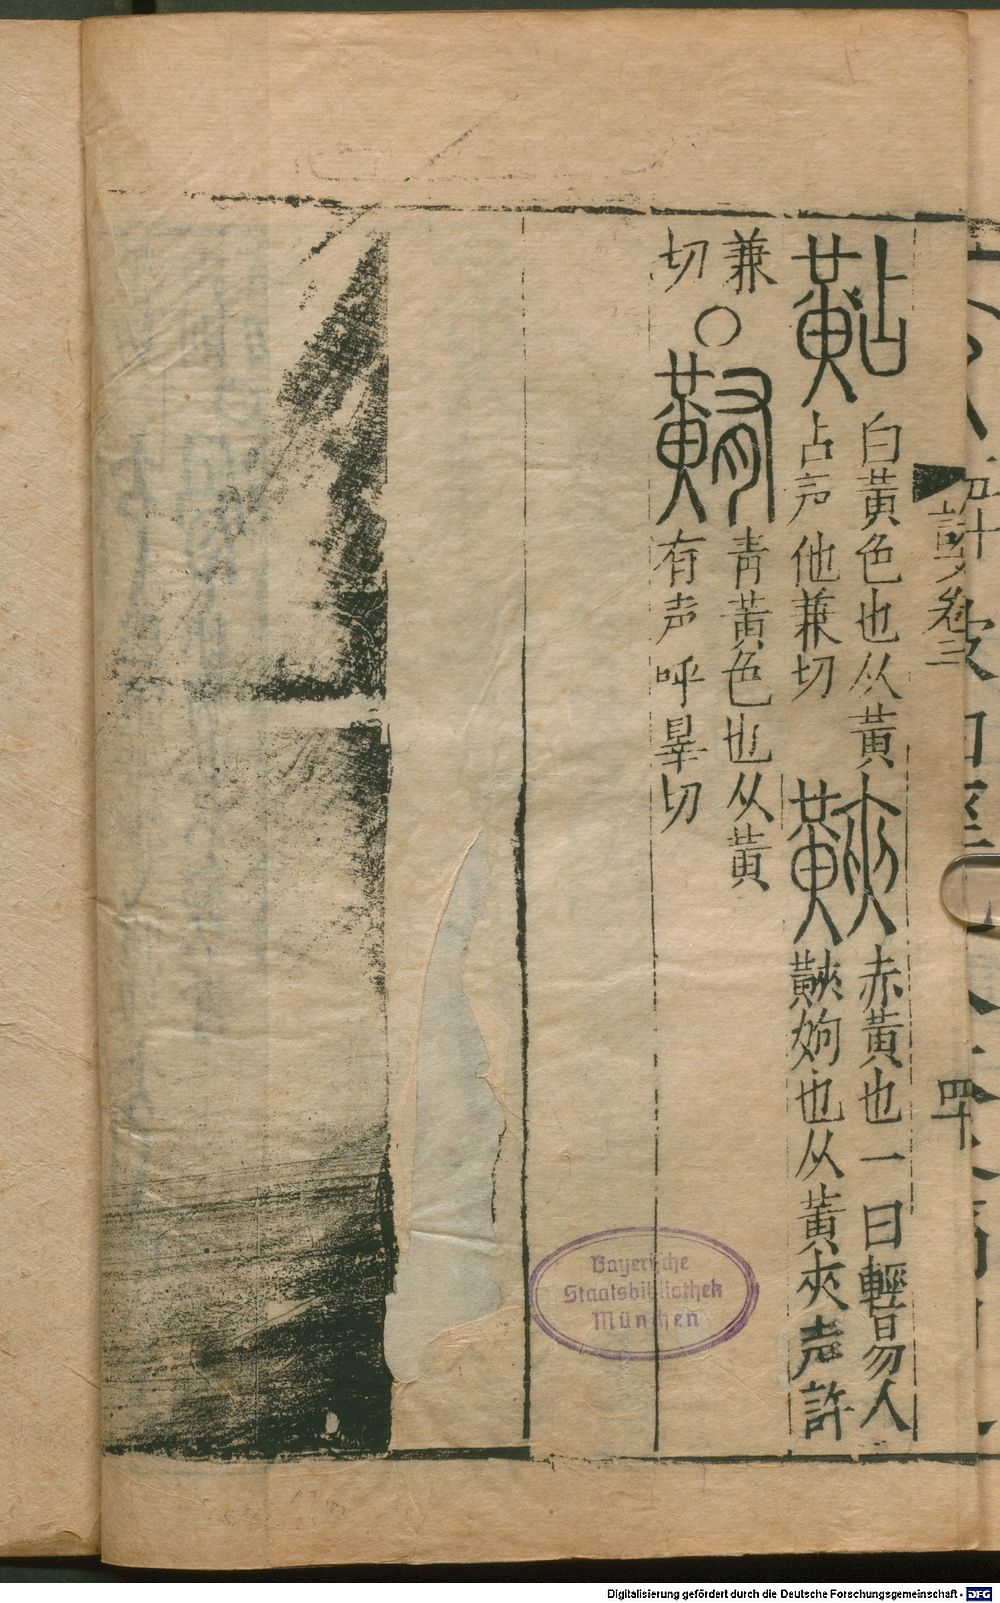 說文卷二
四十
黇 白黃色也从黃
占声他兼切
䵌 赤黃也一曰輕易人
䵌姁也从黃夾声許
兼
切
○
䵋 青黃色也从黃
有声呼辠切
Bayerische
Staatsbibliothek
München
Digitalisierung gefördert durch die Deutsche Forschungsgemeinschaft - DFG